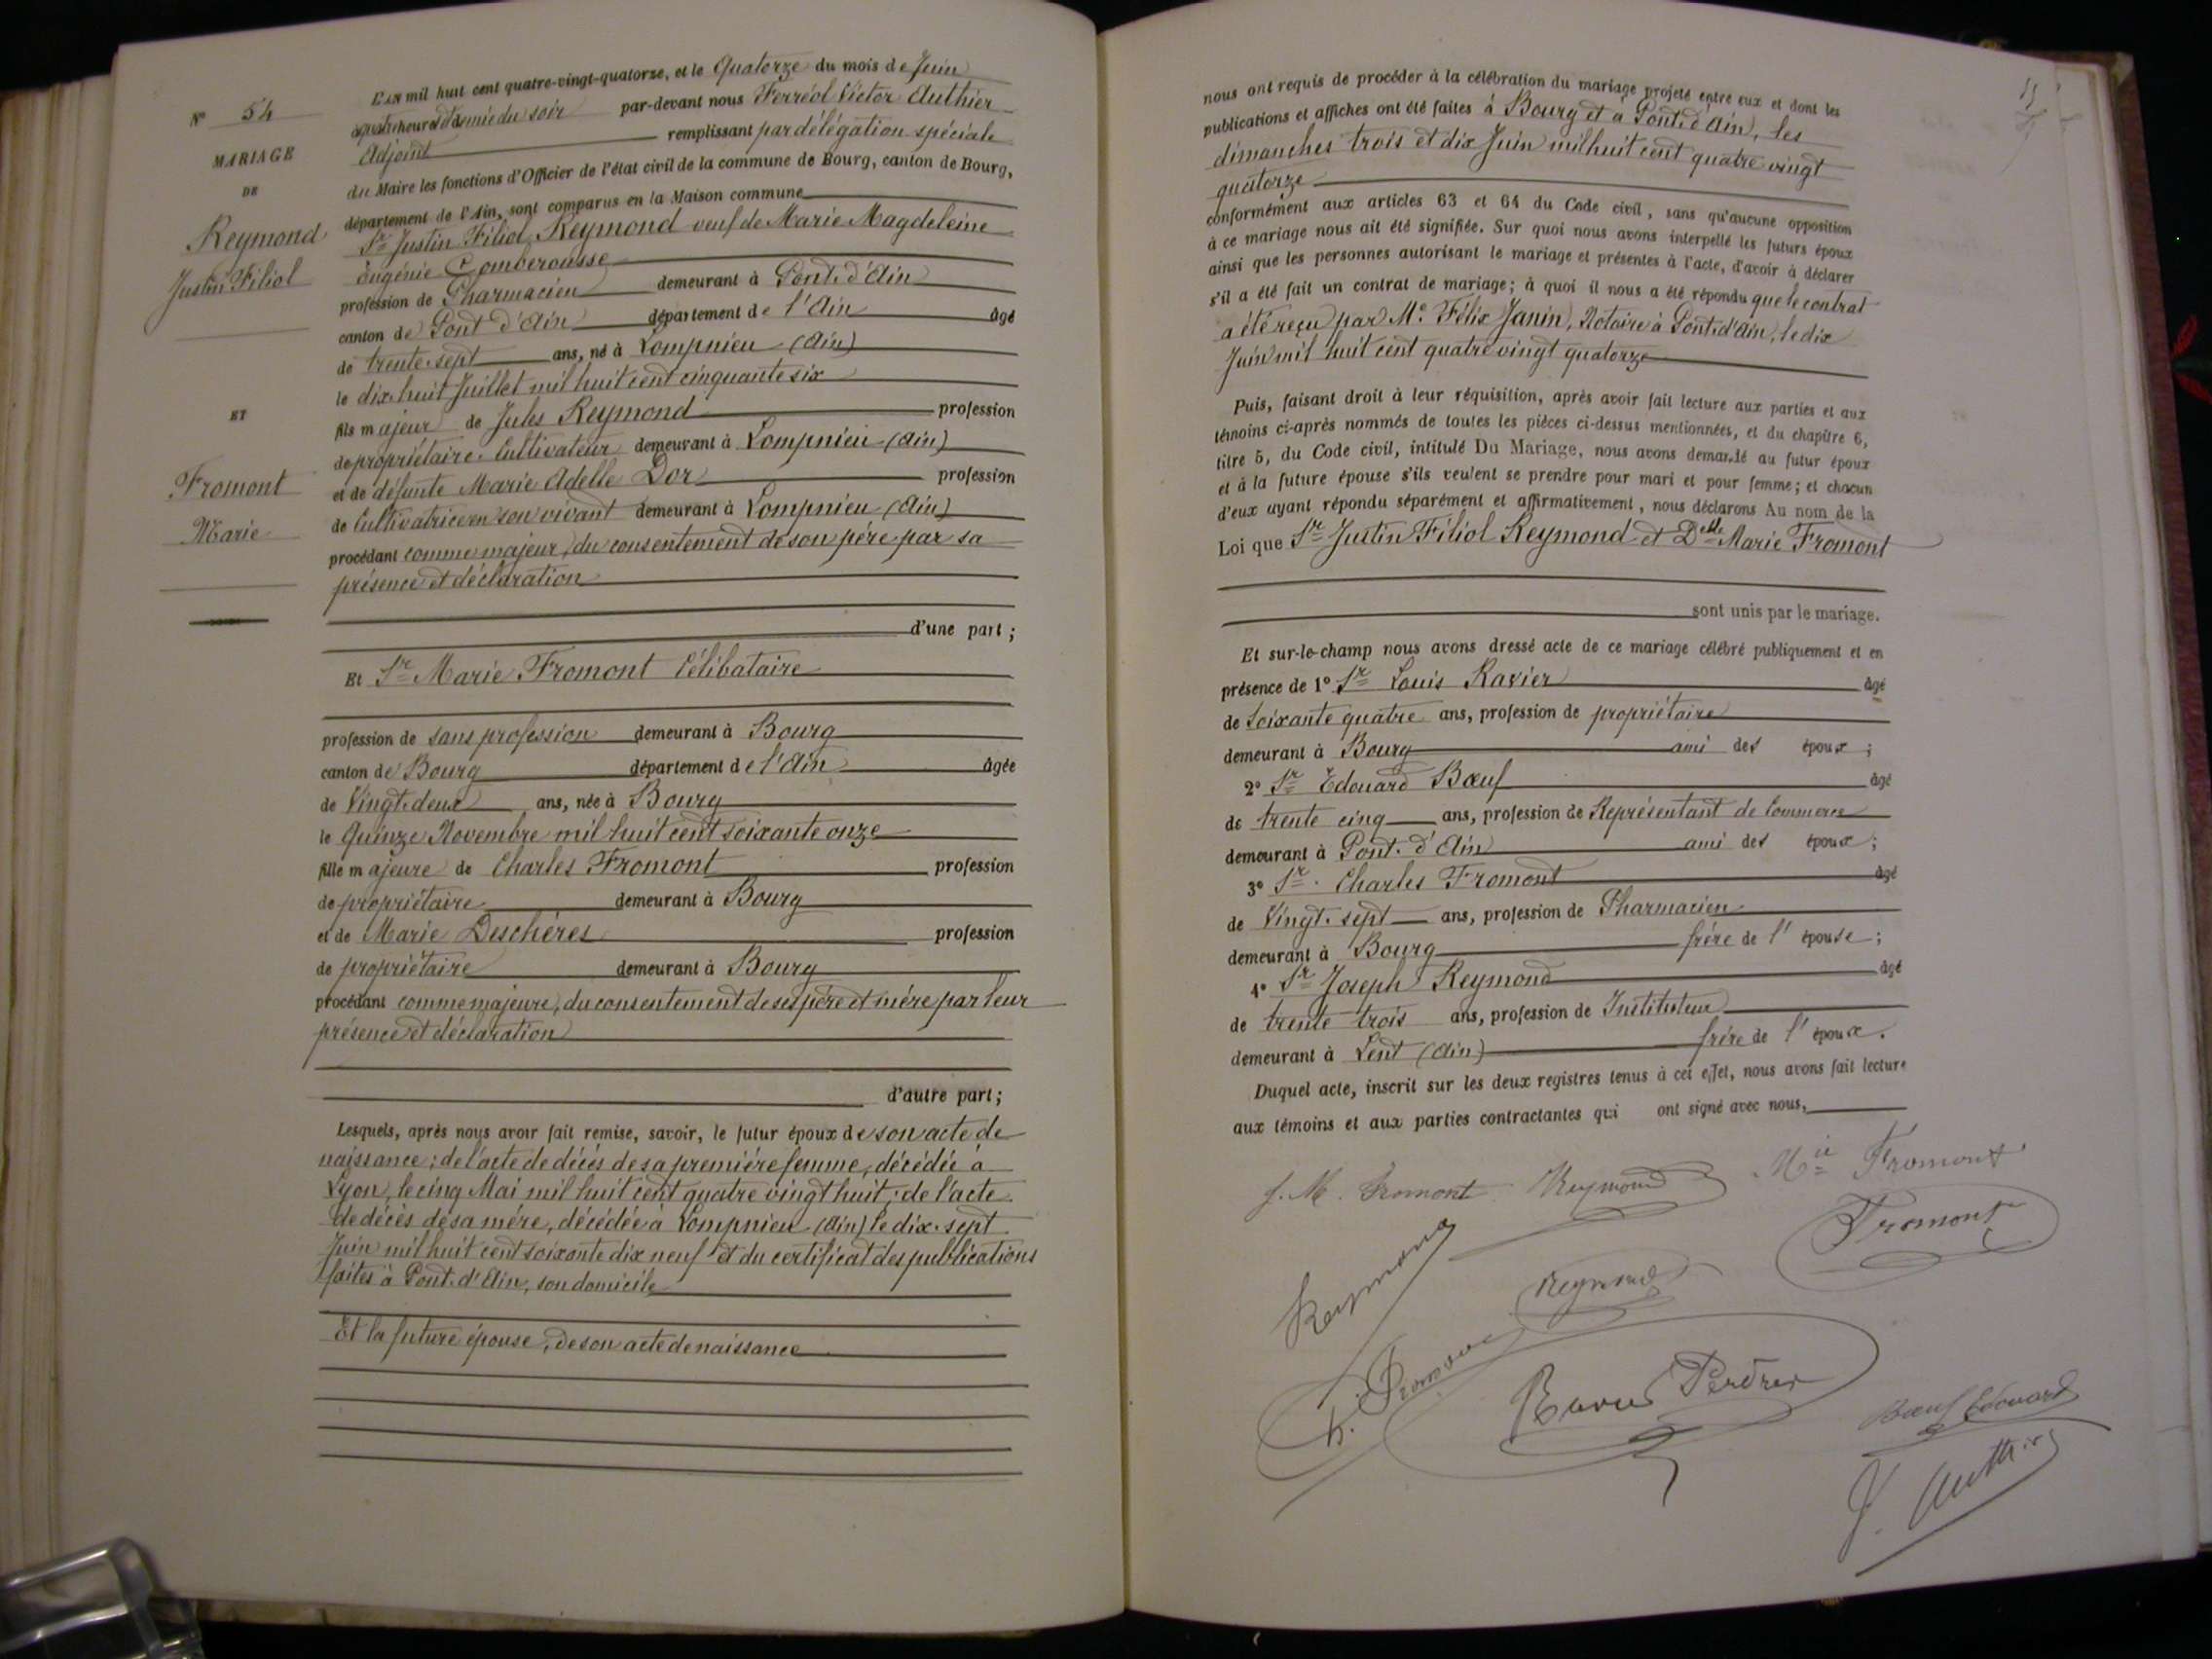 N° 54
MARIAGE
DE
Reymond
Justin Filiol
ET
Fromont
Marie
L'an mil huit cent quatre-vingt-quatorze, et le Quatorze du mois de Juin
à quatre heures et demie du soir par-devant nous Ferréol Victor Authier
Adjoint remplissant par délégation spéciale
du Maire les fonctions d'Officier de l'état civil de la commune de Bourg, canton de Bourg,
département de l'Ain, sont comparus en la Maison commune
Sr Justin Filiol Reymond veuf de Marie Magdeleine
Eugénie Comberousse
profession de Pharmacien demeurant à Pont-d'Ain
canton de Pont d'Ain département de l'Ain âgé
de trente-sept ans, né à Lompnieu (Ain)
le dix-huit Juillet mil huit cent cinquante six
fils majeur de Jules Reymond profession
de propriétaire-Cultivateur demeurant à Lompnieu (Ain)
et de défunte Marie Adelle Dor profession
de Cultivatrice en son vivant demeurant à Lompnieu (Ain)
procédant comme majeur, du consentement de son père par sa
présence et déclaration
d'une part ;
Et Sr Marie Fromont Célibataire
profession de sans profession demeurant à Bourg
canton de Bourg département de l'Ain âgée
de Vingt-deux ans, née à Bourg
le Quinze Novembre mil huit cent soixante onze
fille majeure de Charles Fromont profession
de propriétaire demeurant à Bourg
et de Marie Deschères profession
de propriétaire demeurant à Bourg
procédant comme majeure, du consentement de ses père et mère par leur
présence et déclaration
d'autre part ;
Lesquels, après nous avoir fait remise, savoir, le futur époux de son acte de
naissance ; de l'acte de décès de sa première femme, décédée à
Lyon, le cinq Mai mil huit cent quatre vingt huit ; de l'acte
de décès de sa mère, décédée à Lompnieu (Ain) le dix-sept
Juin mil huit cent soixante dix neuf et du certificat des publications
faites à Pont-d'Ain, son domicile
Et la future épouse, de son acte de naissance
nous ont requis de procéder à la célébration du mariage projeté entre eux et dont les
publications et affiches ont été faites à Bourg et à Pont-d'Ain, les
dimanches trois et dix Juin mil huit cent quatre vingt
quatorze
conformément aux articles 63 et 64 du Code civil, sans qu'aucune opposition
à ce mariage nous ait été signifiée. Sur quoi nous avons interpellé les futurs époux
ainsi que les personnes autorisant le mariage et présentes à l'acte, d'avoir à déclarer
s'il a été fait un contrat de mariage ; à quoi il nous a été répondu que le contrat
a été reçu par Me Félix Janin, Notaire à Pont-d'Ain, le dix
Juin mil huit cent quatre vingt quatorze
Puis, faisant droit à leur réquisition, après avoir fait lecture aux parties et aux
témoins ci-après nommés de toutes les pièces ci-dessus mentionnées, et du chapitre 6,
titre 5, du Code civil, intitulé Du Mariage, nous avons demandé au futur époux
et à la future épouse s'ils veulent se prendre pour mari et pour femme ; et chacun
d'eux ayant répondu séparément et affirmativement, nous déclarons Au nom de la
Loi que Sr Justin Filiol Reymond et Delle Marie Fromont
sont unis par le mariage.
Et sur-le-champ nous avons dressé acte de ce mariage célébré publiquement et en
présence de 1° Sr Louis Ravier âgé
de soixante quatre ans, profession de propriétaire
demeurant à Bourg ami des époux ;
2° Sr Edouard Bœuf âgé
de trente cinq ans, profession de Représentant de Commerce
demeurant à Pont-d'Ain ami des époux ;
3° Sr Charles Fromont âgé
de Vingt-sept ans, profession de Pharmacien
demeurant à Bourg frère de l'épouse ;
4° Sr Joseph Reymond âgé
de trente trois ans, profession de Instituteur
demeurant à Lent (Ain) frère de l'époux.
Duquel acte, inscrit sur les deux registres tenus à cet effet, nous avons fait lecture
aux témoins et aux parties contractantes qui ont signé avec nous,
J. M. Fromont Reymond Mie Fromont
Reymond Reymond Fromont
Bœuf Edouard
F. Authier